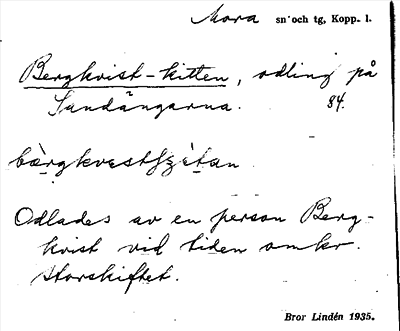 Mora sn och tg, Kopp. l.
Bergkvist-kitten, odling på
Sandängarna. 84.
Odlades av en person Berg-
kvist vid tiden omkr.
storskiftet.
Bror Lindén 1935.